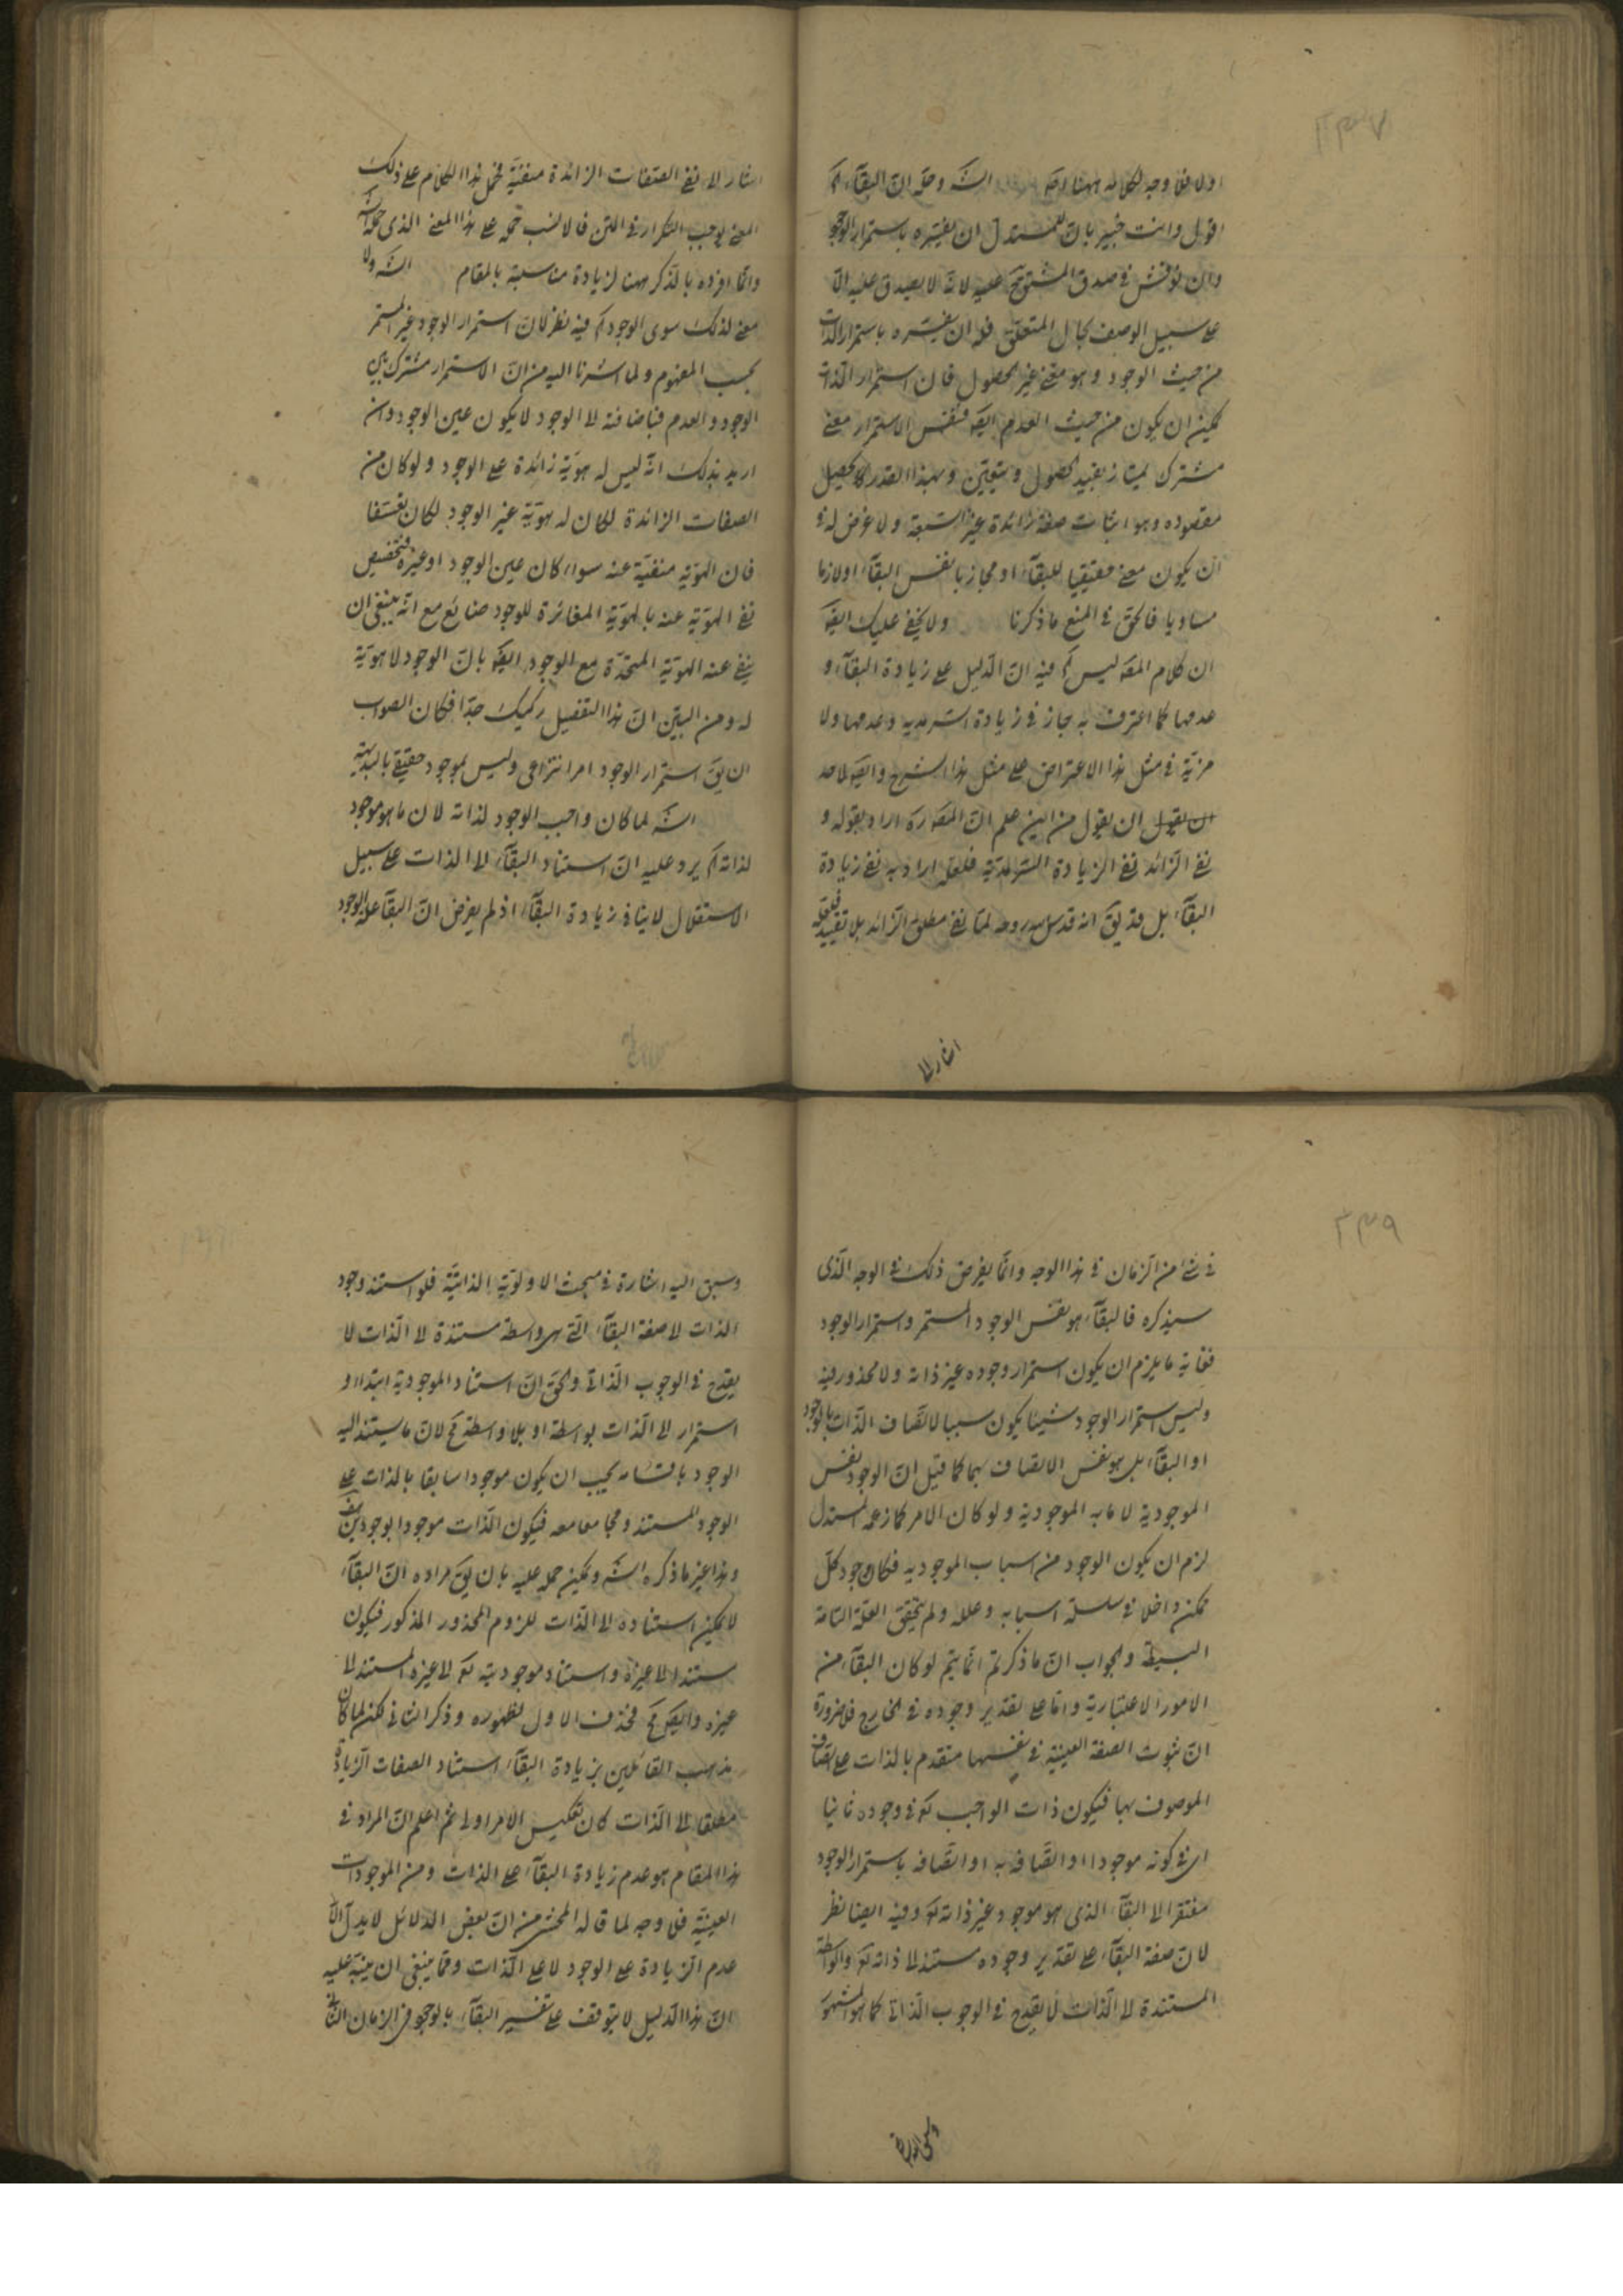 ٢٣٧
اولا فلا وجه لكلامه ههنا وجه الش وحله ان البقآء كم
اقول وانت خبير بان للمستدل ان يفسره باستمرار الوجود
وان نوقش في صدق المشتق عليه لانه لا يصدق عليه الا
على سبيل الوصف بحال المتعلق فله ان يفسره باستمرار الذات
من حيث الوجود وهو معنى غير الحصول فان استمرار الذات
يمكن ان يكون من حيث العدم ايضه فنفس الاستمرار معنى
مشترك يمتاز بقييد الحصول ويتعين وبهذا القدر يحصل
مقصوده وهو اثبات صفة زائدة غير السبعة ولا غرض له في
ان يكون معنى حقيقيا للبقآء او مجازيا نفس البقآء او لازما
مساويا فالحق في المنع ما ذكرنا ولا يخفى عليك ايضه
ان كلام المصه ليس كم فيه ان الدليل على زيادة البقآء و
عدمها كما اعترف به جاز في زيادة السرمدية وعدمها ولا
مزية في مثل هذا الاعتراض على مثل هذا الشرح وايضه لاحد
ان يقول ان يقول من اين علم ان المصه ره اراد بقوله و
نفى الزائد نفى الزيادة السرمدية فلعله اراد به نفى زيادة
البقآء بل قد يق انه قدس سره روحه لما نفى مطلق الزائد بلا تقييد فلعله
اشار الى
اشار الى نفى الصفات الزائدة منفية فحمل هذا الكلام على ذلك
المعنى يوجب التكرار في المتن فالانسب حمله على هذا المعنى الذي حمله الش
وانما افرده بالذكر ههنا لزيادة مناسبة بالمقام الش ولا
معنى لذلك سوى الوجود كم فيه نظر لان استمرار الوجود غير المستمر
بحسب المفهوم ولما اشرنا اليه من ان الاستمرار مشترك بين
الوجود والعدم فباضافته الى الوجود لا يكون عين الوجود وان
اريد بذلك انه ليس له هوية زائدة على الوجود ولو كان من
الصفات الزائدة لكان له هوية غير الوجود لكان تعسفا
فان الهوية منفية عنه سواء كان عين الوجود او غيره فتخصيص
نفى الهوية عنه بالهوية المغائرة للوجود ضائع مع انه ينبغى ان
ينفى عنه الهوية المتحدة مع الوجود ايضه بان الوجود لا هوية
له ومن البين ان هذا التفصيل ركيك جدا فكان الصواب
ان يق استمرار الوجود امر انتزاعى وليس بموجود حقيقى بالبديهة
الش لما كان واجب الوجود لذاته لان ما هو موجود
لذاته كم يرد عليه ان استناد البقآء الى الذات على سبيل
الاستقلال لا ينافي زيادة البقآء اذ لم يفرض ان البقآء علة الوجود
٢٣٩
في شئ من الزمان في هذا الوجه وانما يفرض ذلك في الوجه الذى
سيذكره فالبقآء هو نفس الوجود المستمر واستمرار الوجود
فغاية ما يلزم ان يكون استمرار وجوده غير ذاته ولا محذور فيه
وليس استمرار الوجود شيئا يكون سببا لاتصاف الذات بالوجود
او البقآء بل هو نفس الاتصاف بهما كما قيل ان الوجود نفس
الموجودية لا ما به الموجودية ولو كان الامر كما زعمه المستدل
لزم ان يكون الوجود من اسباب الموجوديه فكان وجود كل
ممكن داخلا في سلسلة اسبابه وعلله ولم يتحقق العلة التامة
البسيطة والجواب ان ما ذكرتم انما يتم لو كان البقآء من
الامور الاعتبارية واما على تقدير وجوده في الخارج فلا ضرورة
ان ثبوت الصفة العينية في نفسها متقدم بالذات على اتصاف
الموصوف بها فيكون ذات الواجب تع في وجوده ثانيا
اى في كونه موجودا او اتصافه به او اتصافه باستمرار الوجود
مفتقرا الى البقآء الذى هو موجود غير ذاته تع وفيه ايضا نظر
لان صفة البقآء على تقدير وجوده مستند الى ذاته تع والواسطة
المستندة الى الذات لا يقدح في الوجوب الذاتى كما هو المشهور
وسبق اليه اشارة
وسبق اليه اشارة في مبحث الاولوية الذاتية فلو استند وجود
الذات الى صفة البقآء التى هى واسطة مستندة الى الذات لا
يقدح في الوجوب الذاتى والحق ان استناد الموجودية ابتداء و
استمرار الى الذات بواسطة او بلا واسطة مح لان ما يستند اليه
الوجود باقسامه يجب ان يكون موجودا سابقا بالذات على
الوجود المستند ومجامعا معه فيكون الذات موجودا بوجودين هف
وهذا غير ما ذكره الش ويمكن حمله عليه بان يق مراده ان البقآء
لا يمكن استناده الى الذات للزوم المحذور المذكور فيكون
مستندا الى غيره واستناد موجوديته تع الى غيره المستند الى
غيره وايضه مح فحذف الاول لظهوره وذكر الثانى لكن لما كان
مذهب القائلين بزيادة البقآء استناد الصفات الزيادة
مطلقا الى الذات كان تعكيس الامر اولى ثم اعلم ان المراد في
هذا المقام هو عدم زيادة البقآء على الذات ومن الموجودات
العينية فلا وجه لما قاله المحشى من ان بعض الدلائل لا يدل الا
عدم الزيادة على الوجود لا على الذات ومما ينبغى ان ينبه عليه
ان هذا الدليل لا يتوقف على تفسير البقآء بالوجود في الزمان الثانى